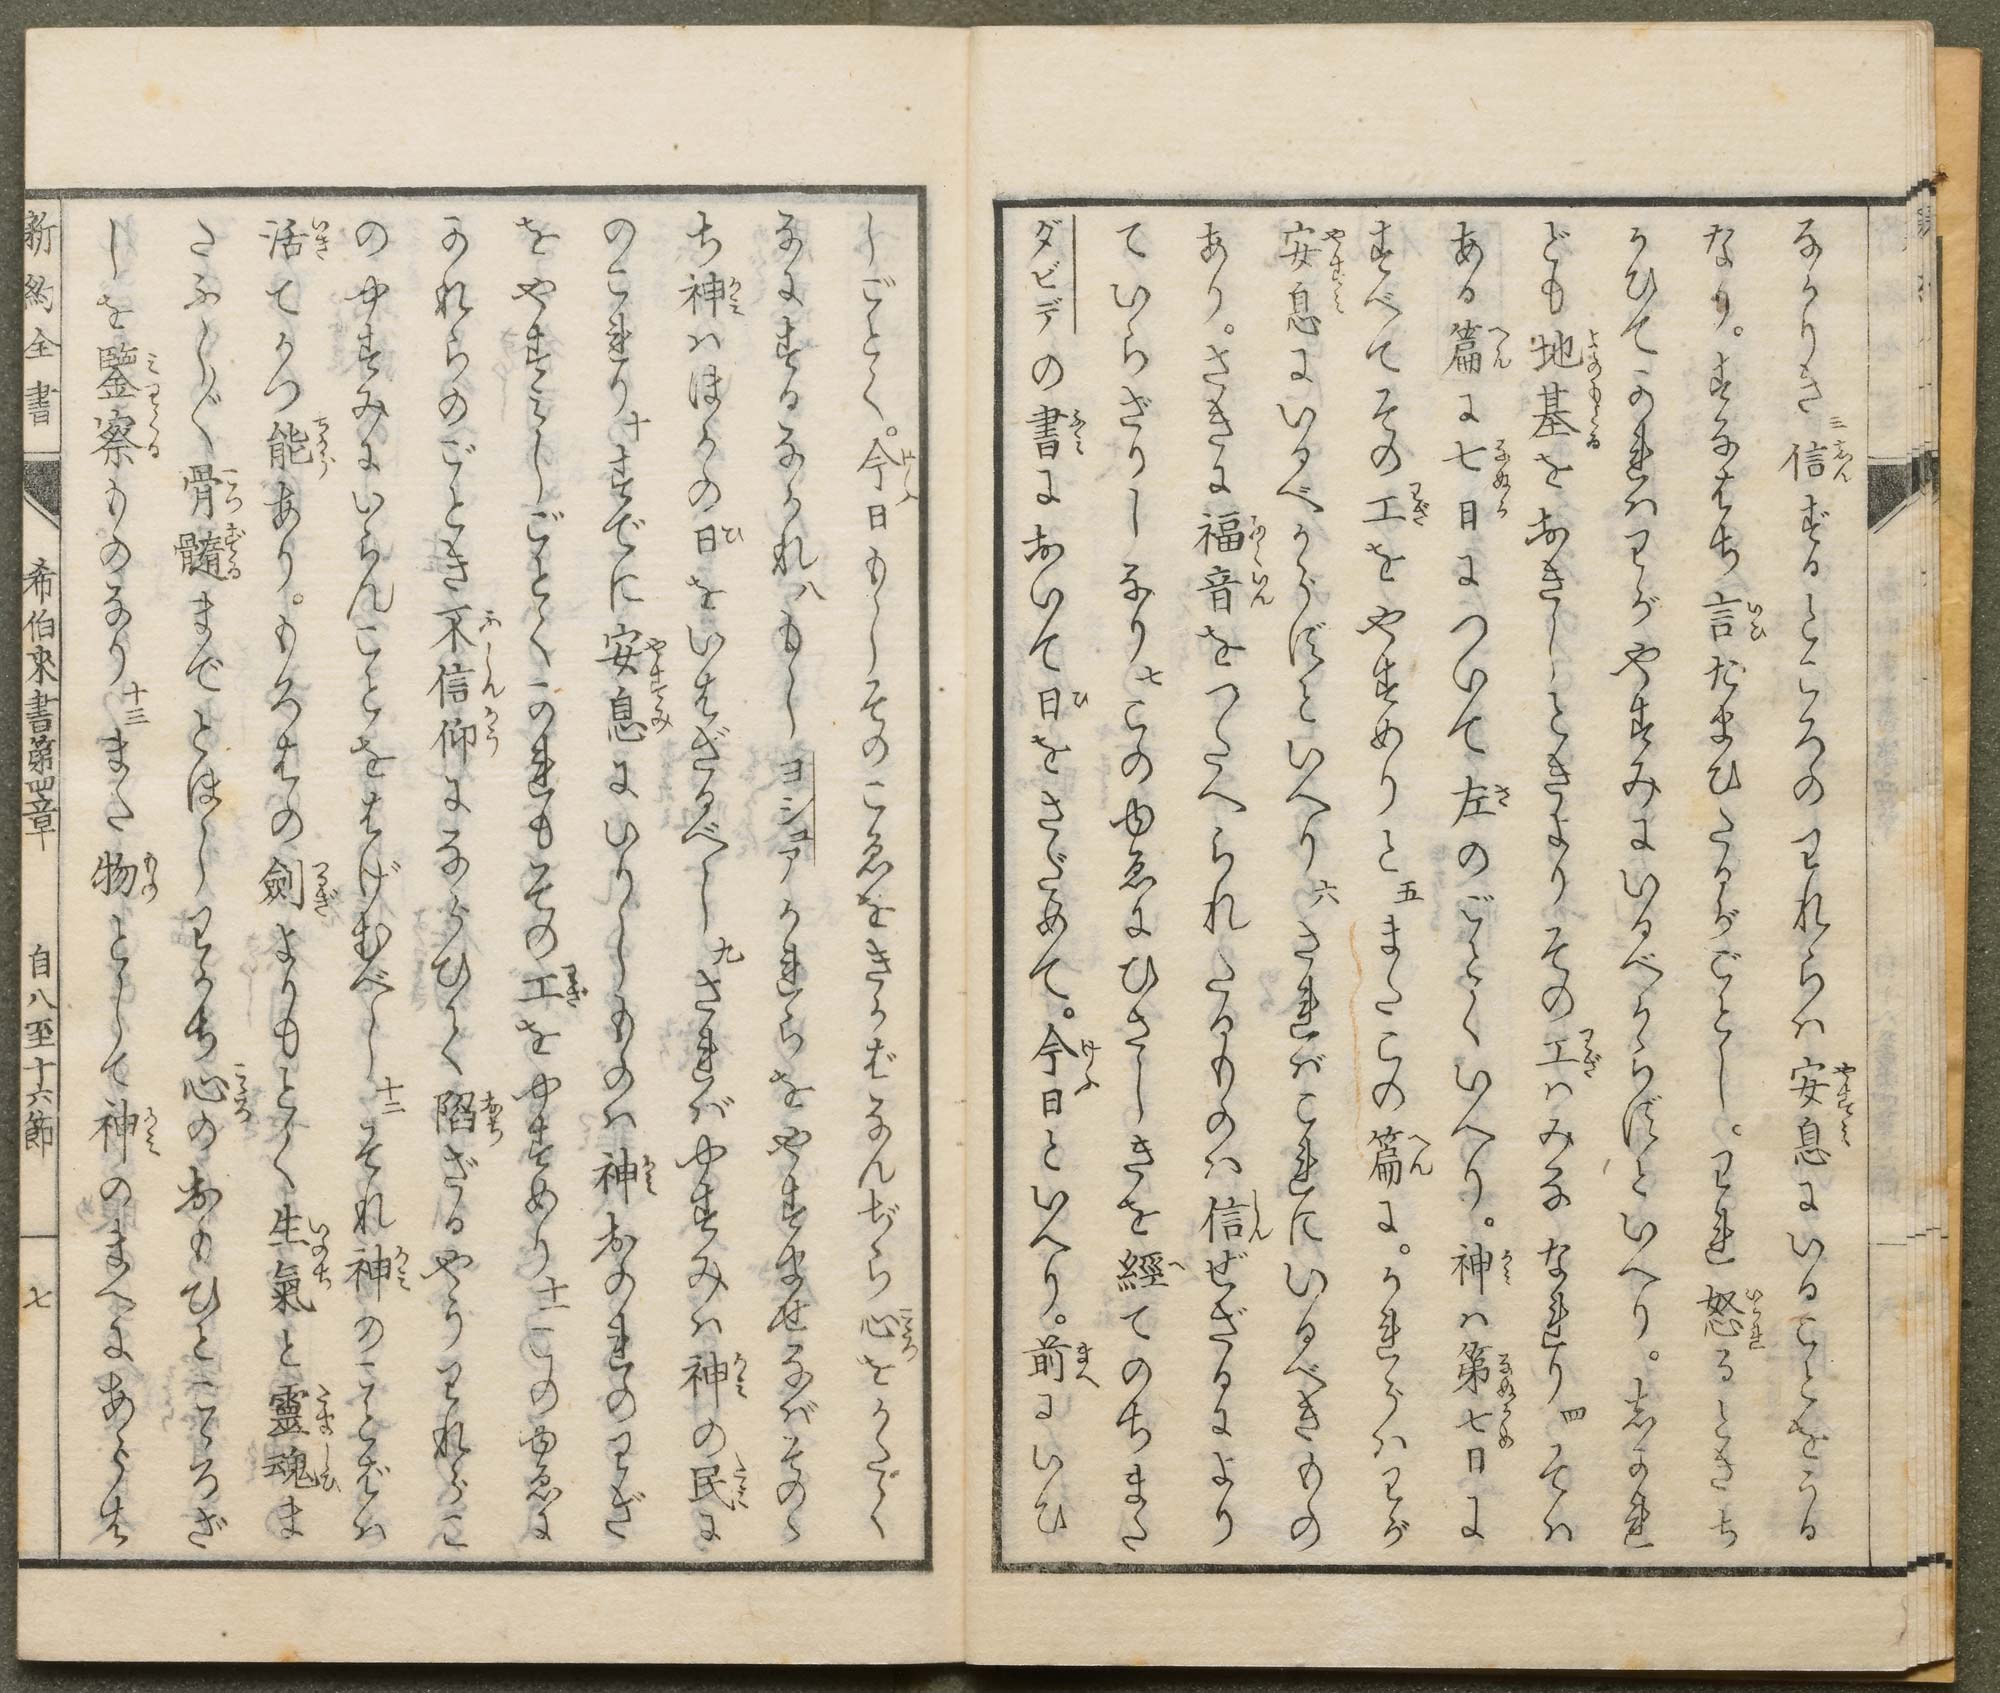 なかりき 三 信ずるところのわれらハ安息にいることをうる
なり。すなはち言たまひたるがごとし。われ怒るときち
かひてかれハわがやすみにいるべからずといへり。しかれ
ども地基をおきしときよりその工ハみなゝなれり 四 そハ
ある篇に七日について左のごとくいへり。神ハ第七日に
すべてその工をやすめりと 五 またこの篇に。かれらハわが
安息にいるべからずといへり 六 さればこれにいるべきもの
あり。さきに福音をつたへられたるものハ信ぜざるにより
ていらざりしなり 七 このゆゑにひさしきを經てのちまた
ダビデの書において日をさだめて。今日といへり。前にいひ
しごとく。今日もしそのこゑをきかばなんぢら心をかたく
なにするなかれ 八 もしヨシユアかれらをやすませなばそのゝ
ち神ハほかの日をいはざるべし 九 さればやすみハ神の民に
のこれり 十 すでに安息にいりしものハ神おのれのわざ
をやすみしごとくかれもその工をやすめり 十一 このゆゑに
かれらのごとき不信仰にならひて陷ざるやうわれらこ
のやすみにいらんことをはげむべし 十二 それ神のことばハ
活てかつ能あり。もろはの劍よりもとく生氣と靈魂ま
たふし〴〵骨髓までとほしわかち心のおもひとこゝろざ
しを鑒察ものなり 十三 また物として神のまへにあらは
新約全書
希伯來書第四章
自八至十六節
七